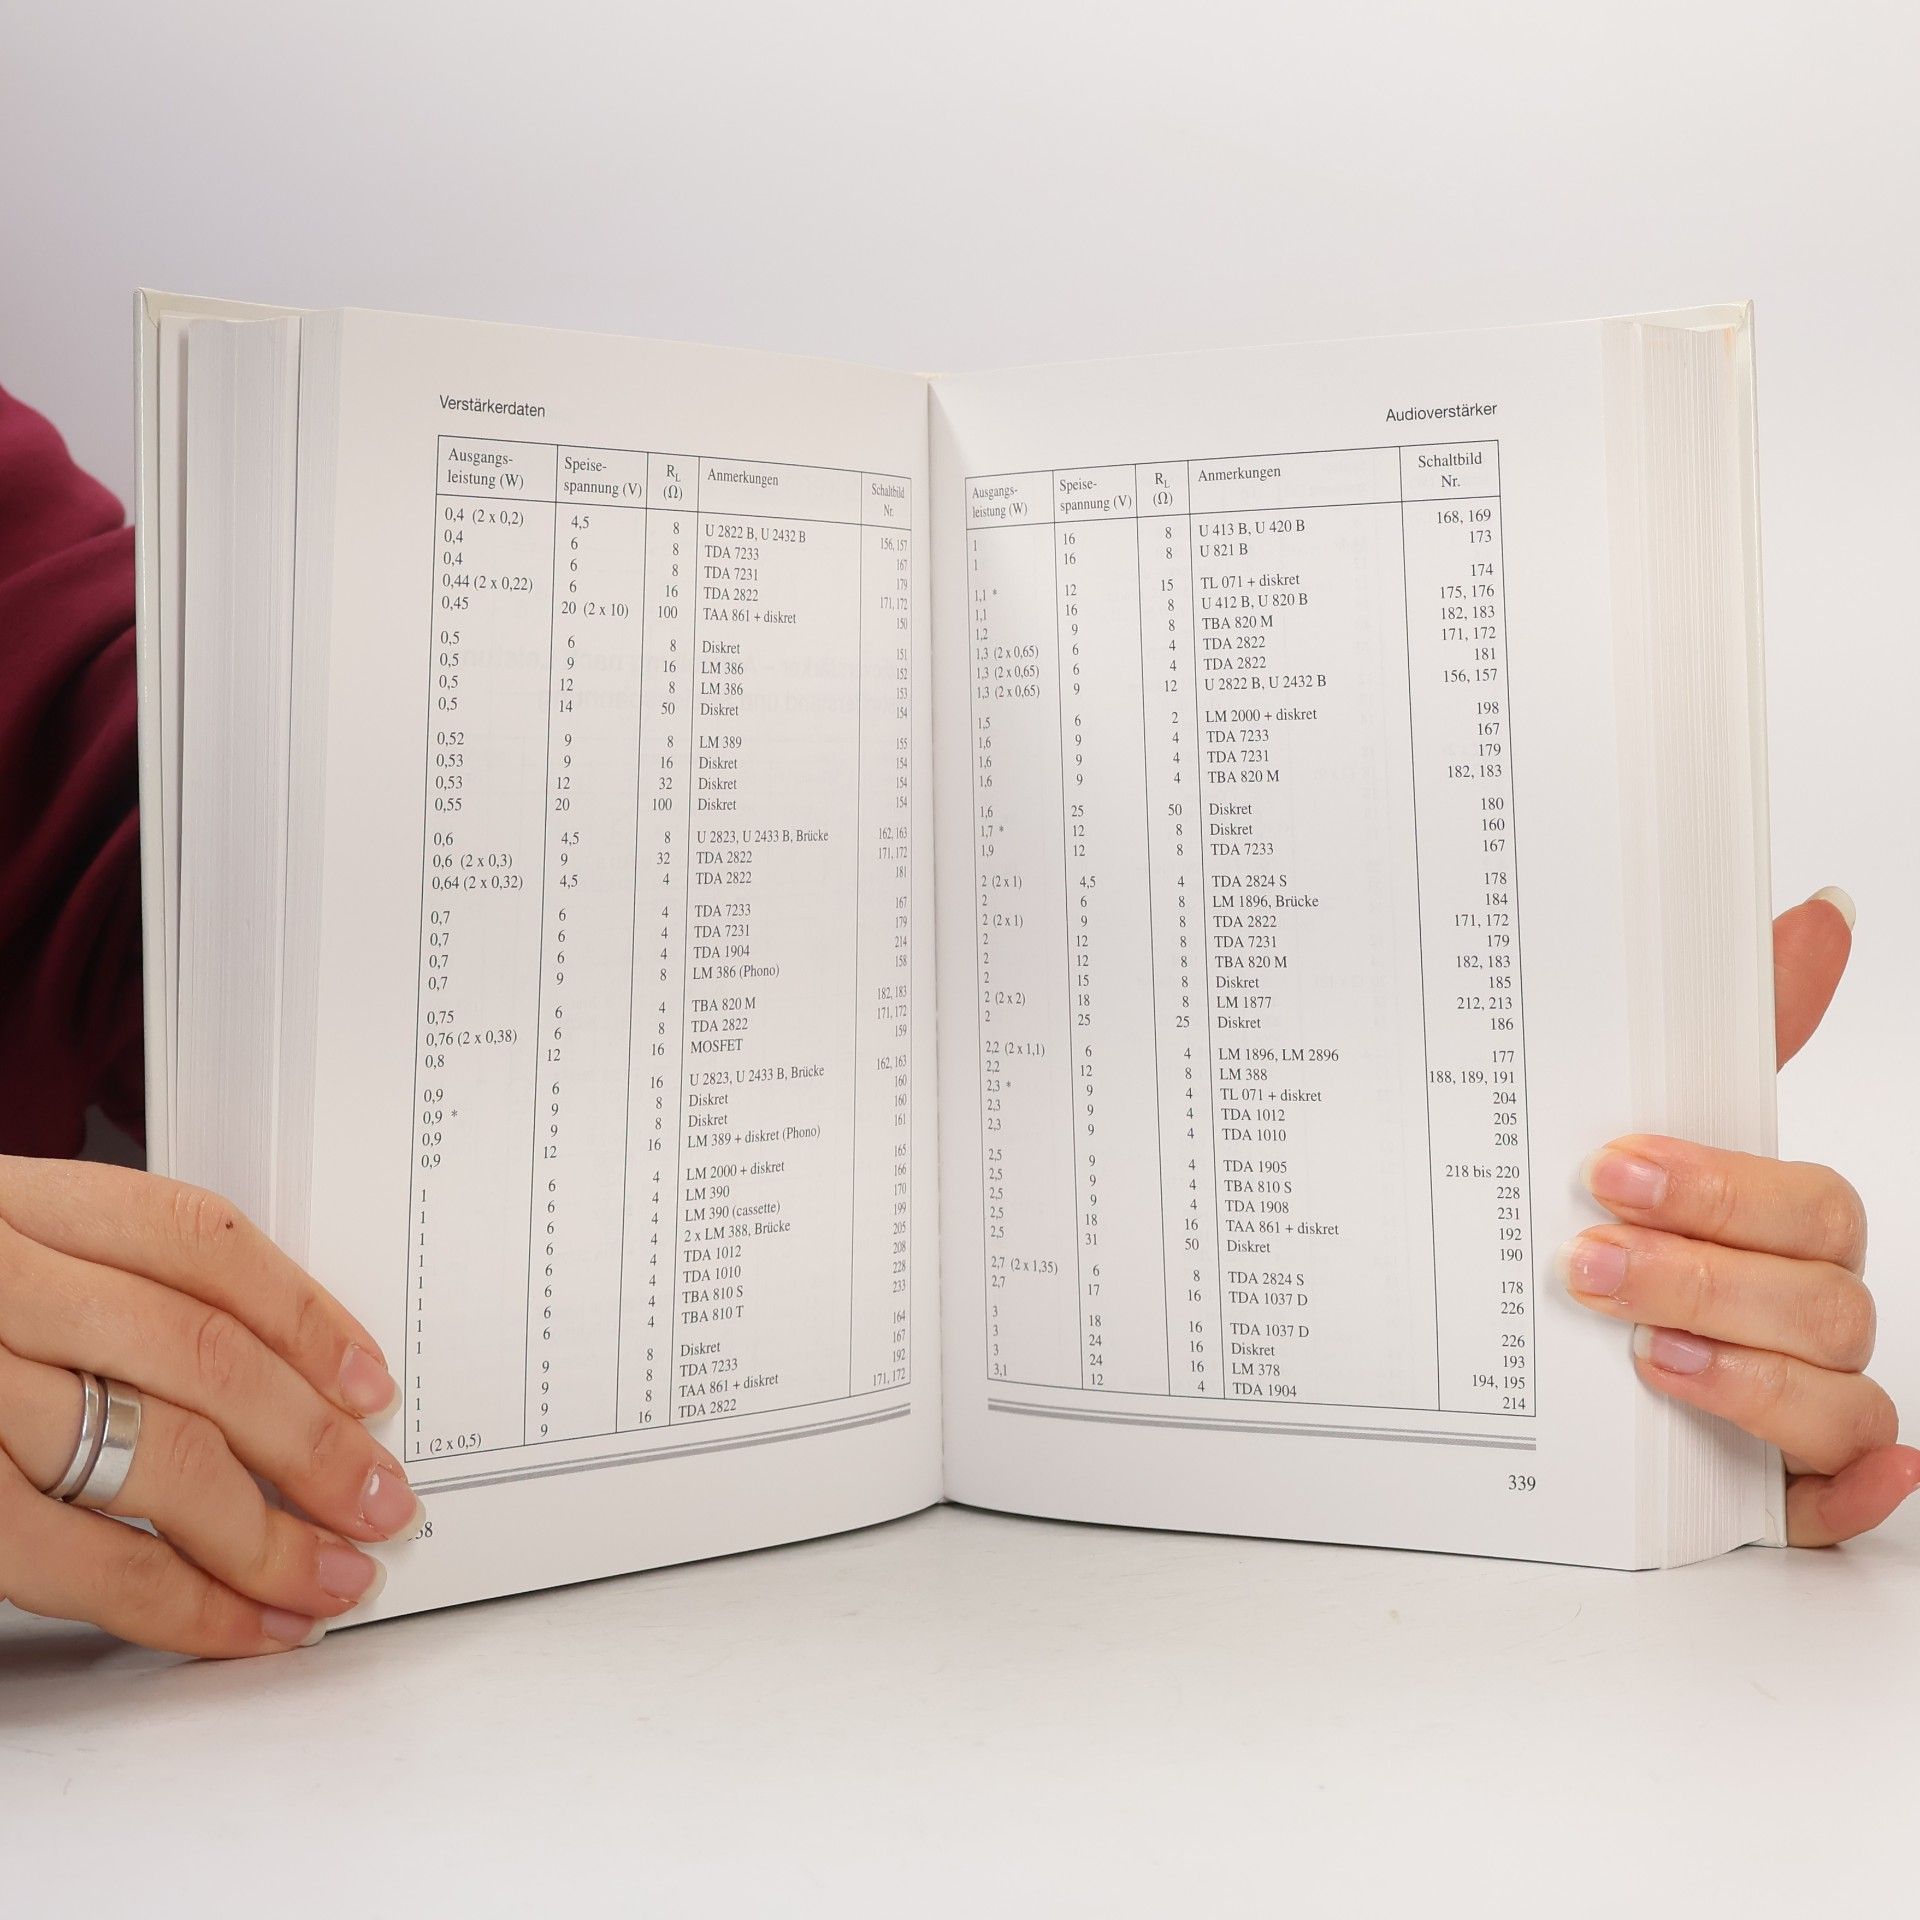 Verstärkerdaten
Ausgangs-leistung (W) Speise-spannung (V) RL (Ω) Anmerkungen Schaltbild Nr.
0,4 (2 x 0,2) 4,5 8 U 2822 B, U 2432 B 156, 157
0,4 6 8 TDA 7233 167
0,4 6 8 TDA 7231 179
0,44 (2 x 0,22) 6 16 TDA 2822 171, 172
0,45 20 (2 x 10) 100 TAA 861 + diskret 150
0,5 6 8 Diskret 151
0,5 9 16 LM 386 152
0,5 12 8 LM 386 153
0,5 14 50 Diskret 154
0,52 9 8 LM 389 155
0,53 9 16 Diskret 154
0,53 12 32 Diskret 154
0,55 20 100 Diskret 154
0,6 4,5 8 U 2823, U 2433 B, Brücke 162, 163
0,6 (2 x 0,3) 9 32 TDA 2822 171, 172
0,64 (2 x 0,32) 4,5 4 TDA 2822 181
0,7 6 4 TDA 7233 167
0,7 6 4 TDA 7231 179
0,7 6 4 TDA 1904 214
0,7 9 8 LM 386 (Phono) 158
0,75 6 4 TBA 820 M 182, 183
0,76 (2 x 0,38) 6 8 TDA 2822 171, 172
0,8 12 16 MOSFET 159
0,9 6 16 U 2823, U 2433 B, Brücke 162, 163
0,9 * 9 8 Diskret 160
0,9 9 8 Diskret 160
0,9 12 16 LM 389 + diskret (Phono) 161
1 6 4 LM 2000 + diskret 165
1 6 4 LM 390 166
1 6 4 LM 390 (cassette) 170
1 6 4 2 x LM 388, Brücke 199
1 6 4 TDA 1012 205
1 6 4 TDA 1010 208
1 6 4 TBA 810 S 228
1 6 4 TBA 810 T 233
1 9 8 Diskret 164
1 9 8 TDA 7233 167
1 9 8 TAA 861 + diskret 192
1 (2 x 0,5) 9 16 TDA 2822 171, 172
Audioverstärker
Ausgangs-leistung (W) Speise-spannung (V) RL (Ω) Anmerkungen Schaltbild Nr.
1 16 8 U 413 B, U 420 B 168, 169
1 16 8 U 821 B 173
1,1 * 12 15 TL 071 + diskret 174
1,1 16 8 U 412 B, U 820 B 175, 176
1,2 9 8 TBA 820 M 182, 183
1,3 (2 x 0,65) 6 4 TDA 2822 171, 172
1,3 (2 x 0,65) 6 4 TDA 2822 181
1,3 (2 x 0,65) 9 12 U 2822 B, U 2432 B 156, 157
1,5 6 2 LM 2000 + diskret 198
1,6 9 4 TDA 7233 167
1,6 9 4 TDA 7231 179
1,6 9 4 TBA 820 M 182, 183
1,6 25 50 Diskret 180
1,7 * 12 8 Diskret 160
1,9 12 8 TDA 7233 167
2 (2 x 1) 4,5 4 TDA 2824 S 178
2 6 8 LM 1896, Brücke 184
2 (2 x 1) 9 8 TDA 2822 171, 172
2 12 8 TDA 7231 179
2 12 8 TBA 820 M 182, 183
2 15 8 Diskret 185
2 (2 x 2) 18 8 LM 1877 212, 213
2 25 25 Diskret 186
2,2 (2 x 1,1) 6 4 LM 1896, LM 2896 177
2,2 12 8 LM 388 188, 189, 191
2,3 * 9 4 TL 071 + diskret 204
2,3 9 4 TDA 1012 205
2,3 9 4 TDA 1010 208
2,5 9 4 TDA 1905 218 bis 220
2,5 9 4 TBA 810 S 228
2,5 9 4 TDA 1908 231
2,5 18 16 TAA 861 + diskret 192
2,5 31 50 Diskret 190
2,7 (2 x 1,35) 6 8 TDA 2824 S 178
2,7 17 16 TDA 1037 D 226
3 18 16 TDA 1037 D 226
3 24 16 Diskret 193
3 24 16 LM 378 194, 195
3,1 12 4 TDA 1904 214
339